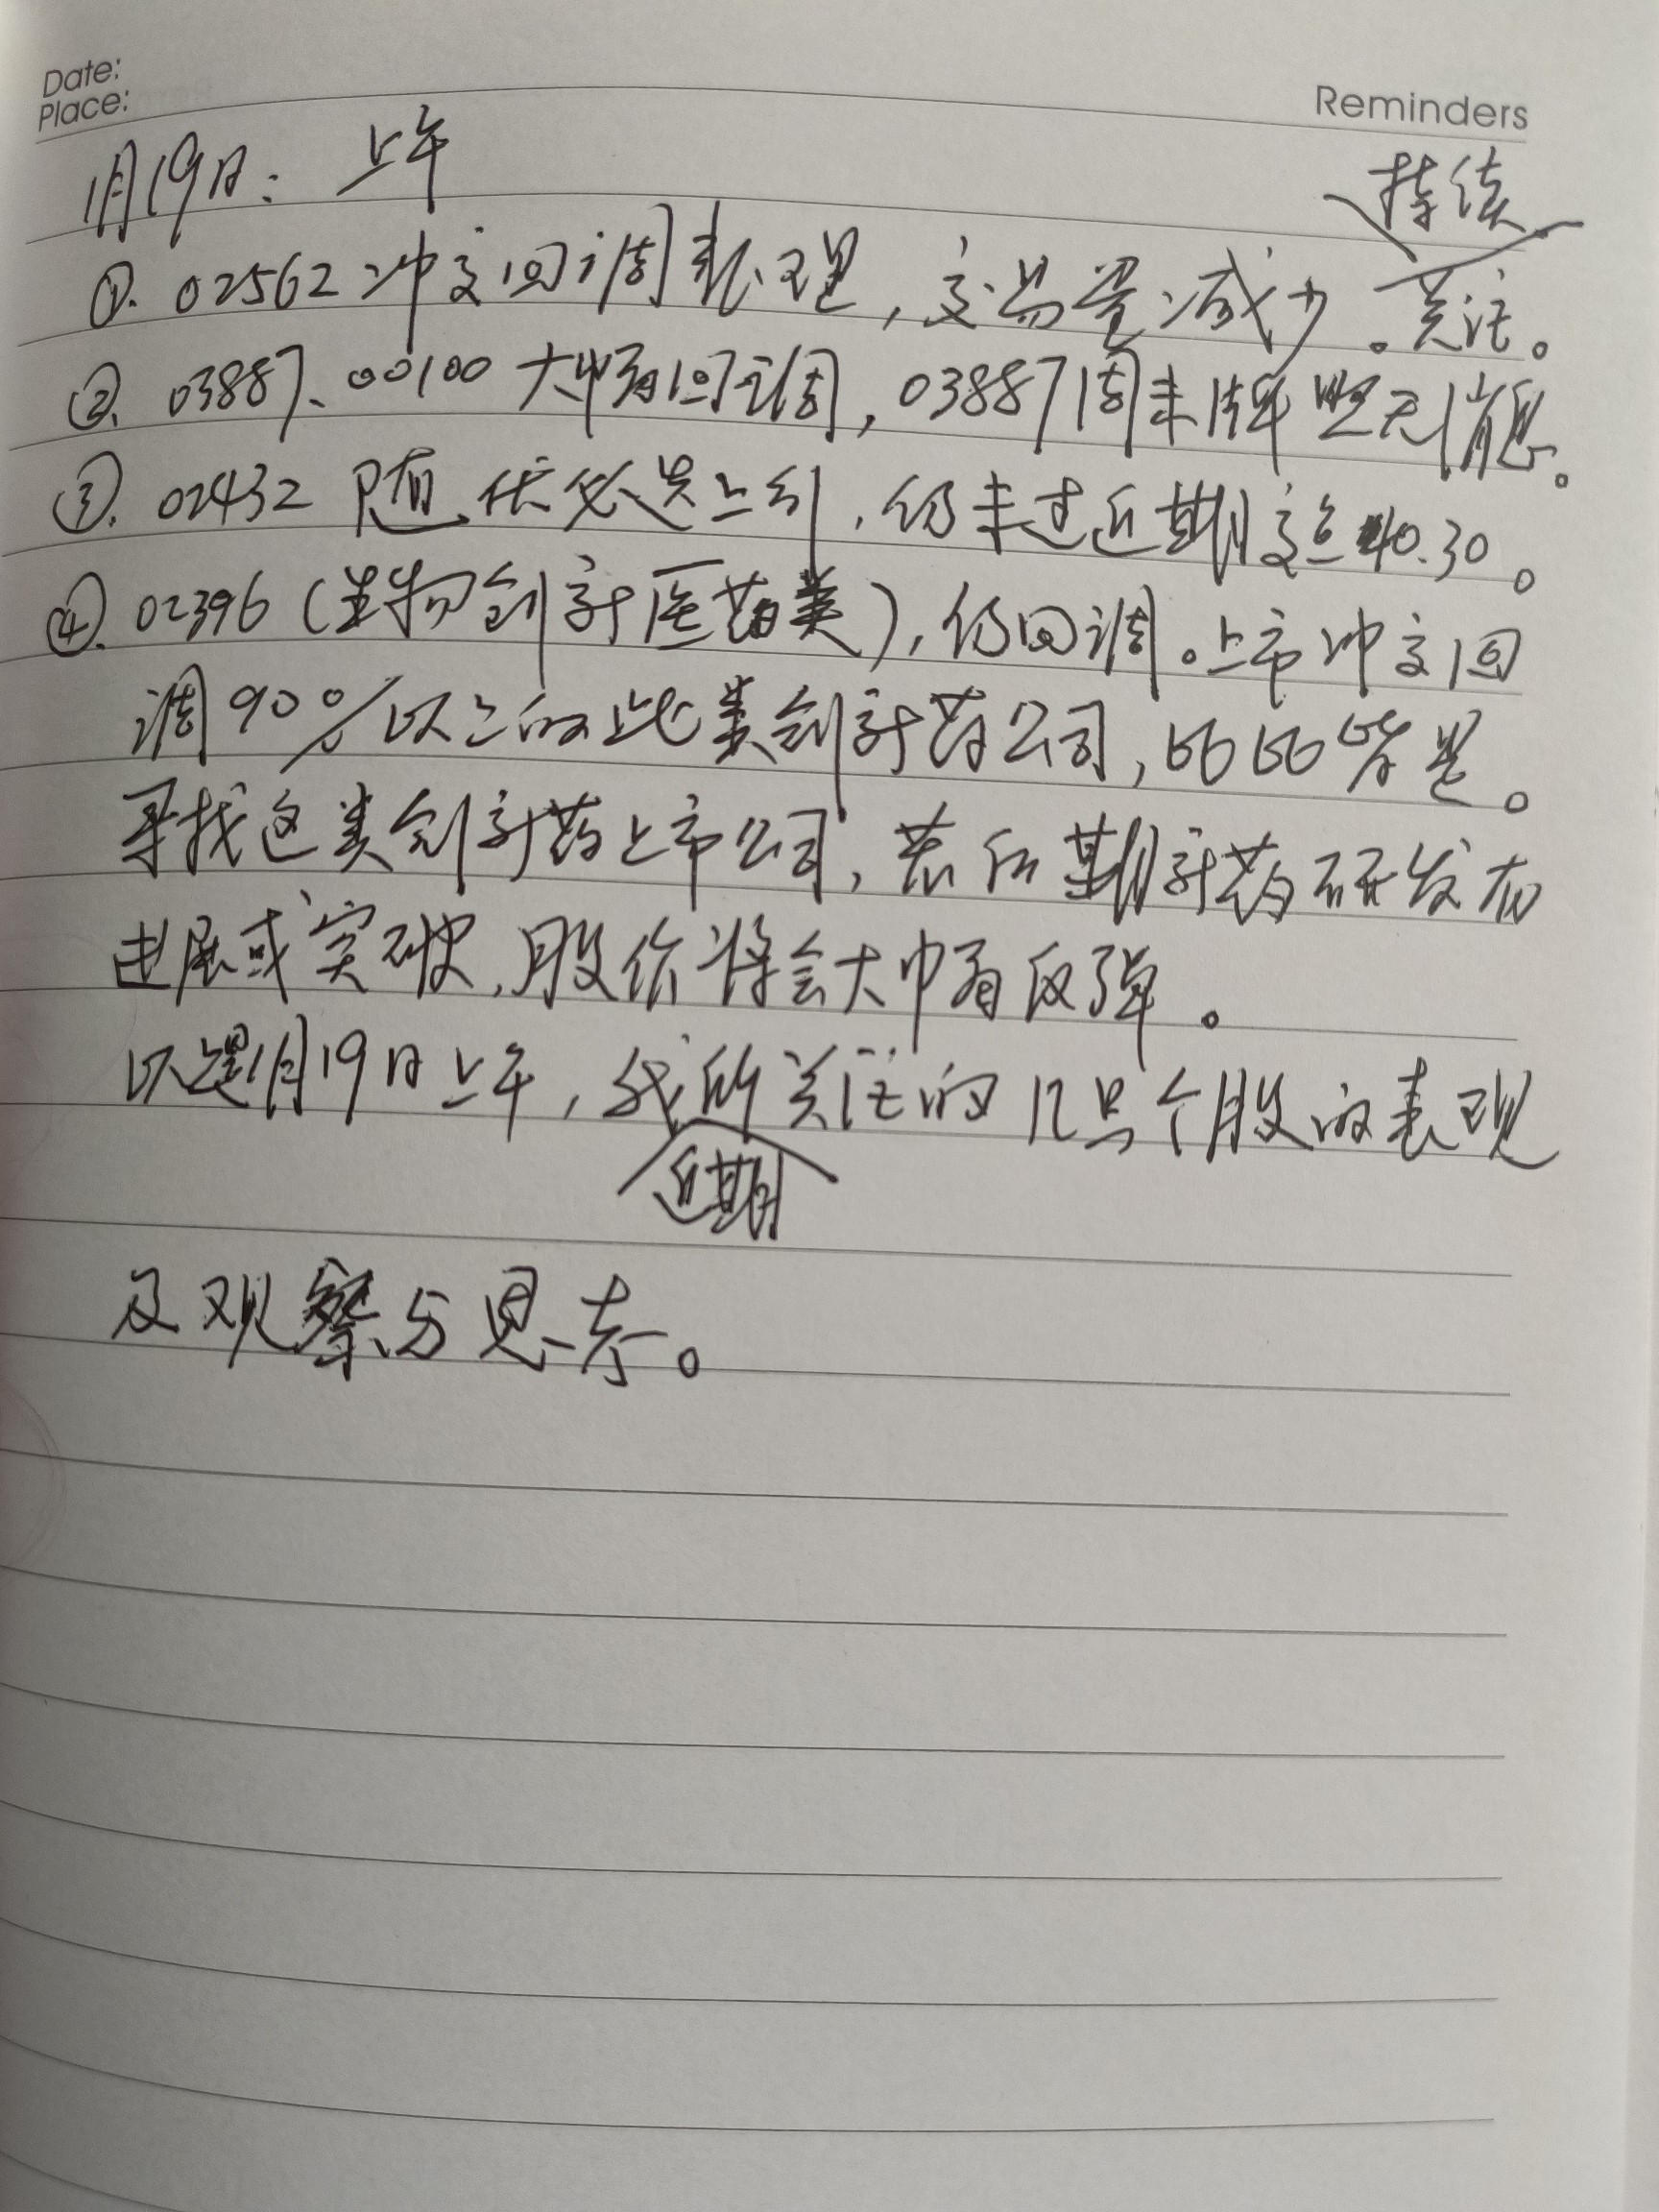 Date:
Place:
Reminders
1月19日：上午
持续
①. 02562冲高回调表现，交易量减少。关注。
②. 03887、00100大幅回调，03887周末牌照无消息。
③. 02432随优必选上引，仍未过近期高点40.30。
④. 02396（生物创新医药类），仍回调。上市冲高回
调90%以上的此类创新药公司，比比皆是。
寻找这类创新药上市公司，若后期新药研发有
进展或突破，股价将会大巾畐反弹。
以是1月19日上午，我所关注的几只个股的表现
近期
及观察与思考。